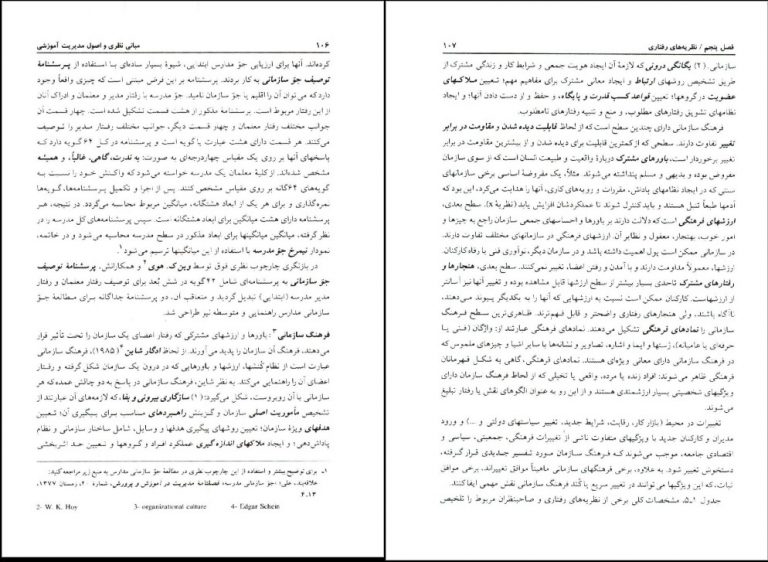 ۱۰۶ مبانی نظری و اصول مدیریت آموزشی
کرده‌اند. آنها برای ارزیابی جوّ مدارس ابتدایی، شیوهٔ بسیار ساده‌ای با استفاده از پرسشنامهٔ
توصیف جوّ سازمانی به کار بردند. پرسشنامه بر این فرض مبتنی است که چیزی واقعاً وجود
دارد که می‌توان آن را اقلیم یا جوّ سازمان نامید. جوّ مدرسه با رفتار مدیر و معلمان و ادراک آنان
از این رفتار مربوط است. پرسشنامهٔ مذکور از هشت قسمت تشکیل شده است. چهار قسمت آن
جوانب مختلف رفتار معلمان و چهار قسمت دیگر، جوانب مختلف رفتار مدیر را توصیف
می‌کنند. هر قسمت دارای هشت عبارت یا گویه است و پرسشنامه در کل ۶۴ گویه دارد که
پاسخهای آنها بر روی یک مقیاس چهاردرجه‌ای به صورت: به ندرت، گاهی، غالباً، و همیشه
مشخص شده‌اند. از کلیهٔ معلمان یک مدرسه خواسته می‌شود که واکنش خود را نسبت به
گویه‌های ۶۴گانه بر روی مقیاس مشخص کنند. پس از اجرا و تکمیل پرسشنامه‌ها، گویه‌ها
نمره‌گذاری و برای هر یک از ابعاد هشتگانه، میانگین مربوط محاسبه می‌گردد. در نتیجه، هر
پرسشنامه دارای هشت میانگین برای ابعاد هشتگانه است. سپس پرسشنامه‌های کل مدرسه را در
نظر گرفته، میانگین میانگینها برای ابعاد مذکور در سطح مدرسه محاسبه می‌شود و در خاتمه،
نمودار نیمرخ جوّ مدرسه با استفاده از این میانگینها ترسیم می‌شود۱.
در بازنگری چارچوب نظری فوق توسط وین.ک. هوی۲ و همکارانش، پرسشنامهٔ توصیف
جوّ سازمانی به پرسشنامه‌ای شامل ۴۲گویه در شش بُعد برای توصیف رفتار معلمان و رفتار
مدیر مدرسه (ابتدایی) تبدیل گردید و متعاقب آن، دو پرسشنامهٔ جداگانه برای مطالعهٔ جوّ
سازمانی مدارس راهنمایی و متوسطه نیز طراحی شد.
فرهنگ سازمانی۳: باورها و ارزشهای مشترکی که رفتار اعضای یک سازمان را تحت تأثیر قرار
می‌دهند، فرهنگ آن سازمان را پدید می‌آورند. از لحاظ ادگار شاین۴ (۱۹۸۵)، فرهنگ سازمانی
عبارت است از نظام کُنشها، ارزشها و باورهایی که در درون یک سازمان شکل گرفته و رفتار
اعضای آن را راهنمایی می‌کند. به نظر شاین، فرهنگ سازمانی در پاسخ به دو چالش عمده که هر
سازمانی با آن روبروست، شکل می‌گیرد: (۱) سازگاری بیرونی و بقاء، که لازمه‌های آن عبارتند از
تشخیص مأموریت اصلی سازمان و گزینش راهبردهای مناسب برای پیگیری آن؛ تعیین
هدفهای ویژهٔ سازمان؛ تعیین روشهای پیگیری هدفها و وسایل، شامل ساختار سازمانی و نظام
پاداش‌دهی؛ و ایجاد ملاکهای اندازه‌گیری عملکرد افراد و گروهها و تعیین حد اثربخشی
۱ـ برای توضیح بیشتر و استفاده از این چارچوب نظری در مطالعهٔ جوّ سازمانی مدارس به منبع زیر مراجعه کنید:
علاقه‌بند، علی؛ «جوّ سازمانی مدرسه»، فصلنامهٔ مدیریت در آموزش و پرورش، شمارهٔ ۲۰، زمستان ۱۳۷۷،
2- W. K. Hoy 3- organizational culture 4- Edgar Schein
فصل پنجم / نظریه‌های رفتاری ۱۰۷
سازمانی. (۲) یگانگی درونی که لازمهٔ آن ایجاد هویت جمعی و شرایط کار و زندگی مشترک از
طریق تشخیص روشهای ارتباط و ایجاد معانی مشترک برای مفاهیم مهم؛ تعیین ملاکهای
عضویت در گروهها؛ تعیین قواعد کسب قدرت و پایگاه، و حفظ و از دست دادن آنها؛ و ایجاد
نظامهای تشویق رفتارهای مطلوب، و منع و تنبیه رفتارهای نامطلوب.
فرهنگ سازمانی دارای چندین سطح است که از لحاظ قابلیت دیده شدن و مقاومت در برابر
تغییر تفاوت دارند. سطحی که از کمترین قابلیت برای دیده شدن و از بیشترین مقاومت در برابر
تغییر برخوردار است، باورهای مشترک دربارهٔ واقعیت و طبیعت انسان است که از سوی سازمان
مفروض بوده و بدیهی و مسلم پنداشته می‌شوند. مثلاً، یک مفروضهٔ اساسی برخی سازمانهای
سنتی که در ایجاد نظامهای پاداش، مقررات و رویه‌های کاری، آنها را هدایت می‌کرد، این بود که
آدمها طبعاً تنبل هستند و باید کنترل شوند تا عملکردشان افزایش یابد (نظریهٔ X). سطح بعدی،
ارزشهای فرهنگی است که دلالت دارند بر باورها و احساسهای جمعی سازمان راجع به چیزها و
امور خوب، بهنجار، معقول و نظایر آن. ارزشهای فرهنگی در سازمانهای مختلف تفاوت دارند.
در سازمانی ممکن است پول اهمیت داشته باشد و در سازمان دیگر، نوآوری فنی یا رفاه کارکنان.
ارزشها، معمولاً مداومت دارند و با آمدن و رفتن اعضا، تغییر نمی‌کنند. سطح بعدی، هنجارها و
رفتارهای مشترک تاحدی بسیار بیشتر از سطح ارزشها قابل مشاهده بوده و تغییر آنها نیز آسانتر
از ارزشهاست. کارکنان ممکن است نسبت به ارزشهایی که آنها را به یکدیگر پیوند می‌دهند،
ناآگاه باشند، ولی هنجارهای رفتاری واضحتر و قابل فهم‌ترند. ظاهری‌ترین سطح فرهنگ
سازمانی را نمادهای فرهنگی تشکیل می‌دهند. نمادهای فرهنگی عبارتند از: واژگان (فنی یا
حرفه‌ای یا عامیانه)، ژستها و ایما و اشاره، تصاویر و نشانه‌ها با سایر اشیا و چیزهای ملموس که
در فرهنگ سازمانی دارای معانی ویژه‌ای هستند. نمادهای فرهنگی، گاهی به شکل قهرمانان
فرهنگی ظاهر می‌شوند: افراد زنده یا مرده، واقعی یا تخیلی که از لحاظ فرهنگ سازمان دارای
ویژگیهای شخصیتی بسیار ارزشمندی هستند و از این رو به عنوان الگوهای نقش یا رفتار تبلیغ
می‌شوند.
تغییرات در محیط (بازار کار، رقابت، شرایط جدید، تغییر سیاستهای دولتی و ...) و ورود
مدیران و کارکنان جدید با ویژگیهای متفاوت ناشی از تغییرات فرهنگی، جمعیتی، سیاسی و
اقتصادی جامعه، موجب می‌شوند که فرهنگ سازمان مورد تفسیر جدیدی قرار گرفته،
دستخوش تغییر شود. به علاوه، برخی فرهنگهای سازمانی ماهیتاً موافق تغییراند، برخی موافق
ثبات، که این ویژگیها می‌توانند در تغییر سریع یا کُند فرهنگ سازمانی نقش مهمی ایفا کنند.
جدول ۱ـ۵، مشخصات کلی برخی از نظریه‌های رفتاری و صاحبنظران مربوط را تلخیص